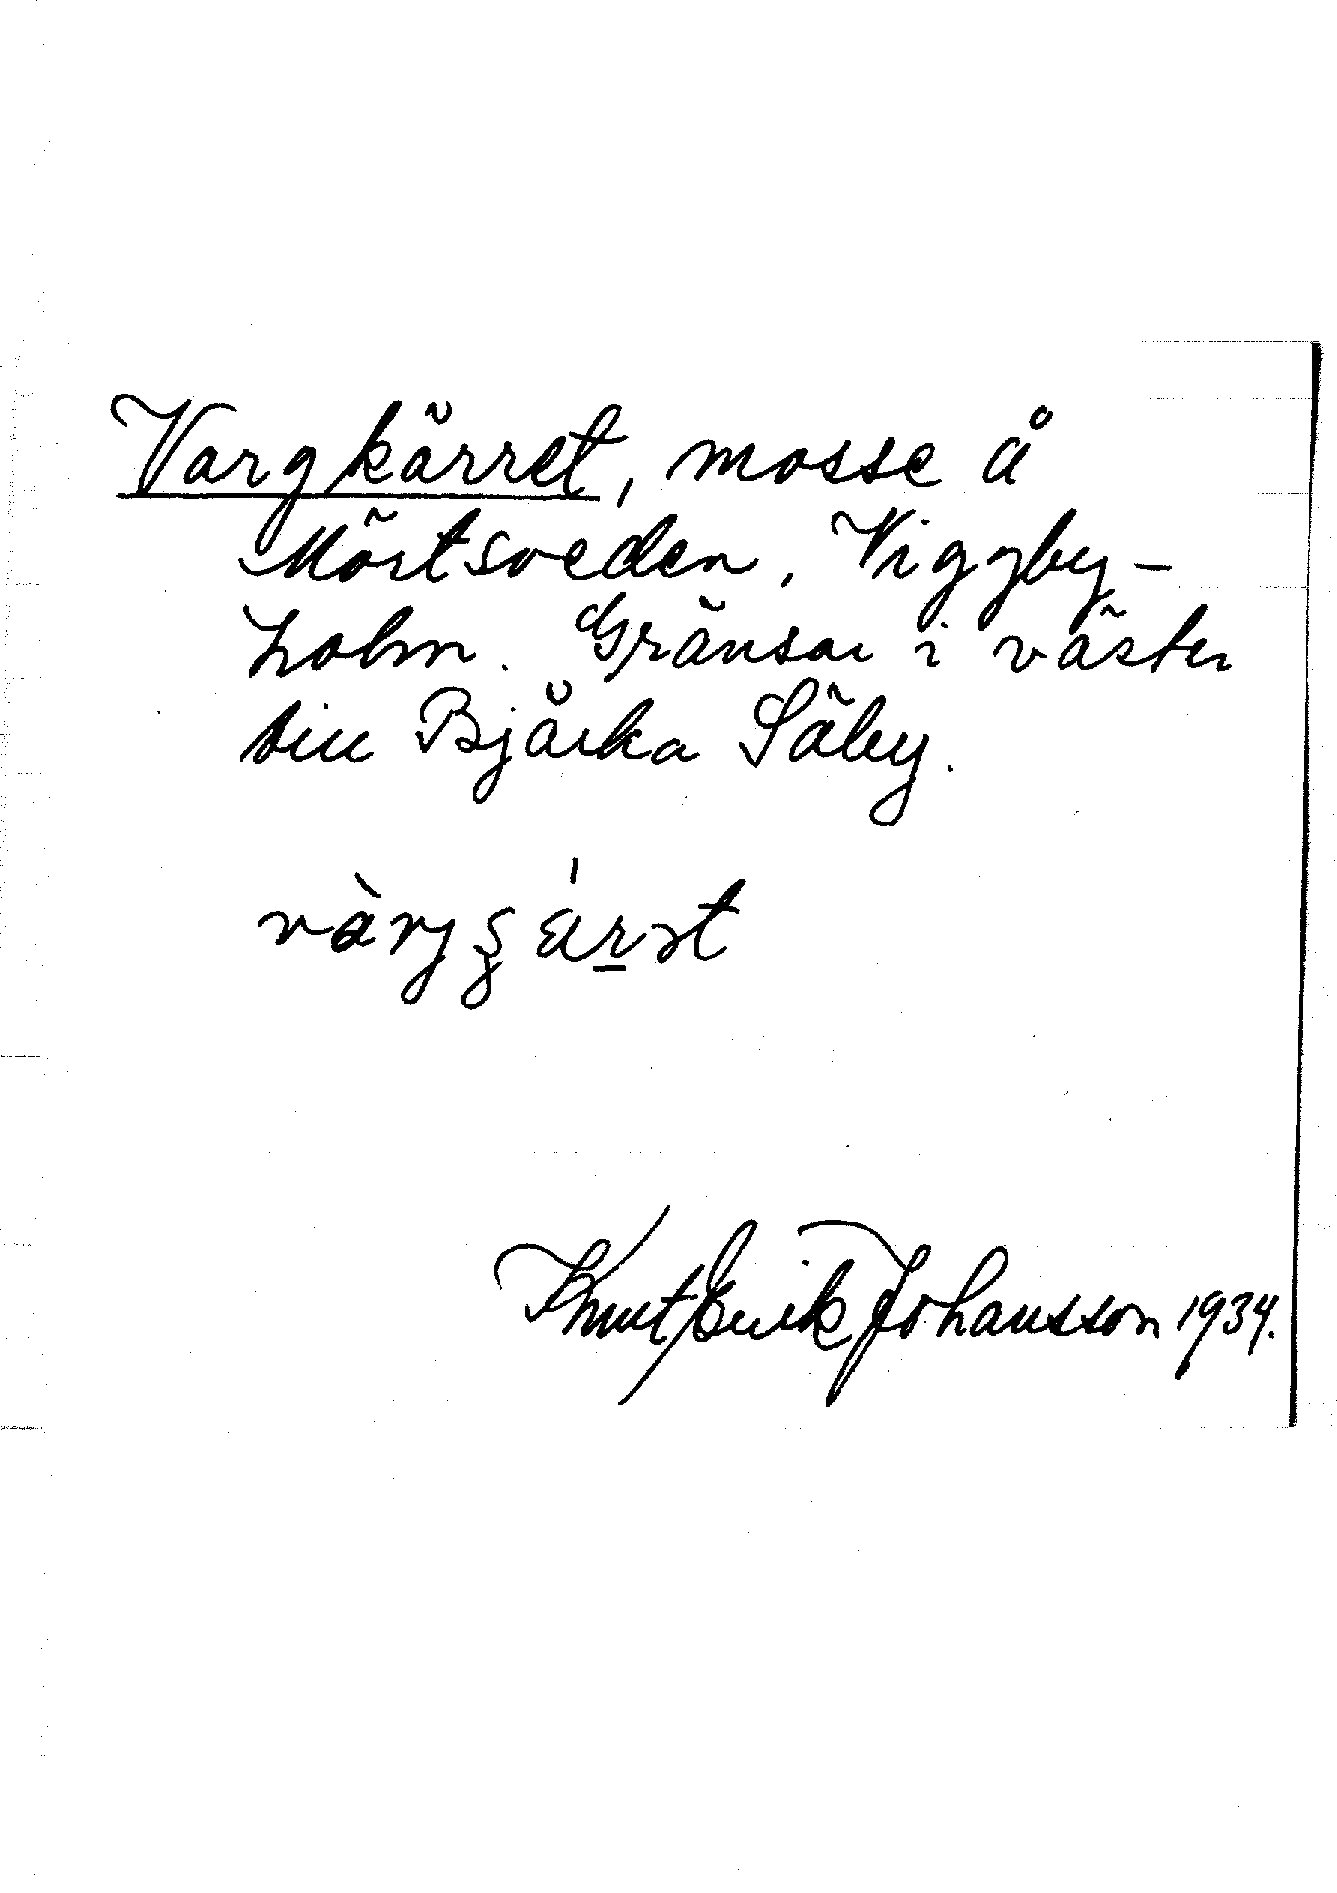 Vargkärret, mosse å
Mörtsveden, Viggby-
holm. Gränsar i väster
till Bjärka Säby.
Knut Erik Johansson 1934.